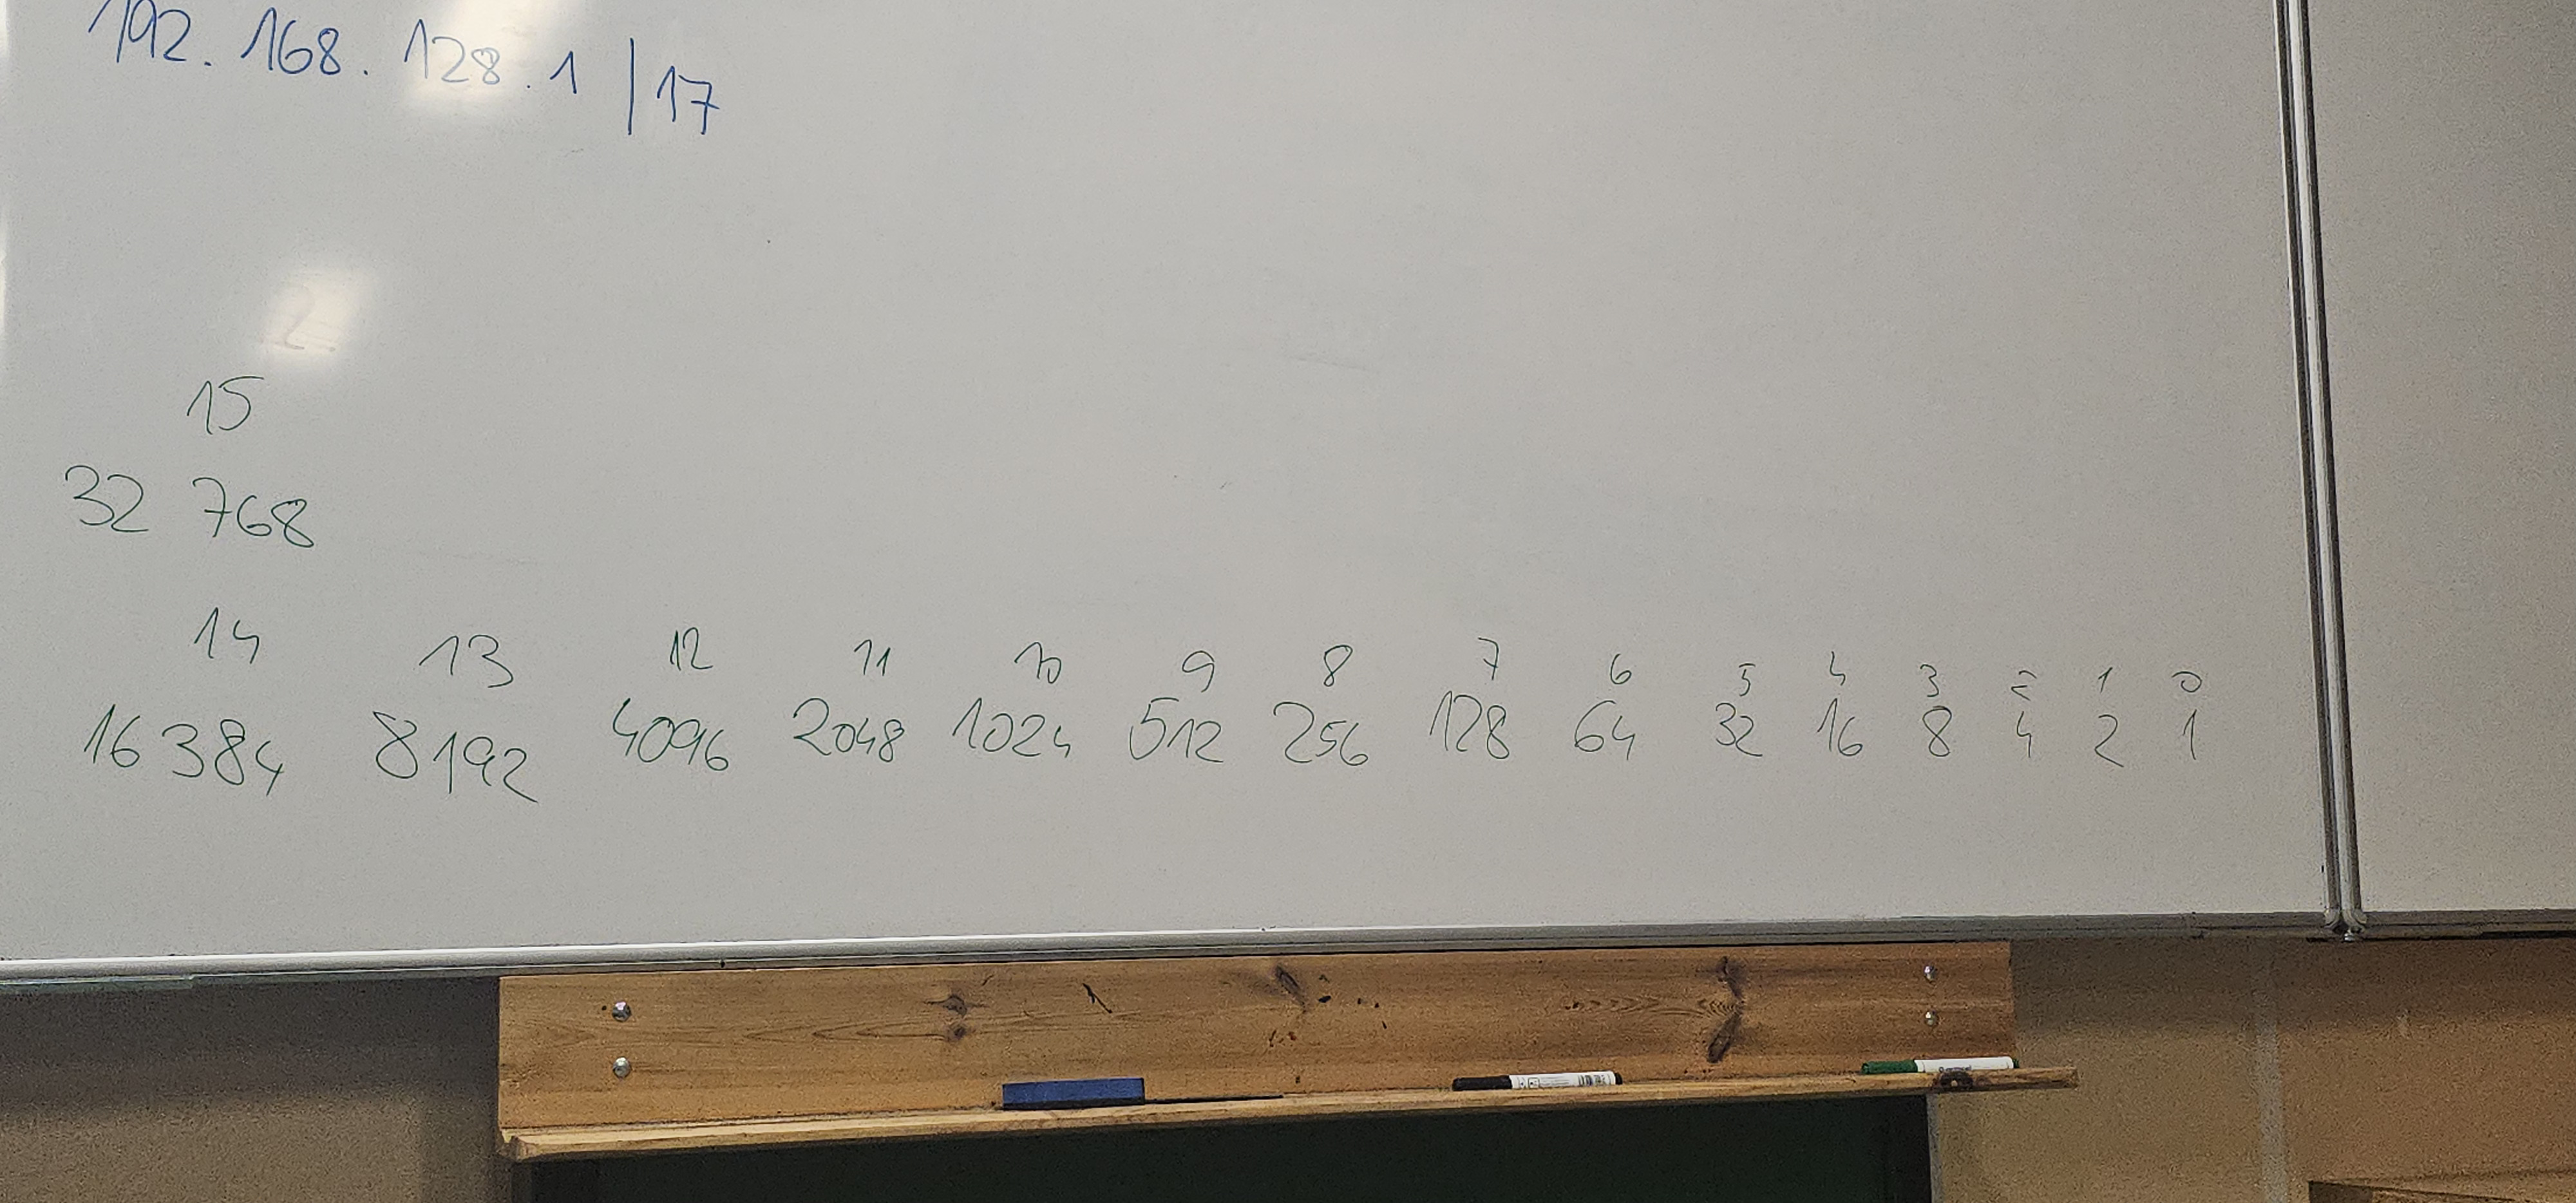 192.168.128.1 | 17
2
15
32 768
14 13 12 11 10 9 8 7 6 5 4 3 2 1 0
16384 8192 4096 2048 1024 512 256 128 64 32 16 8 4 2 1